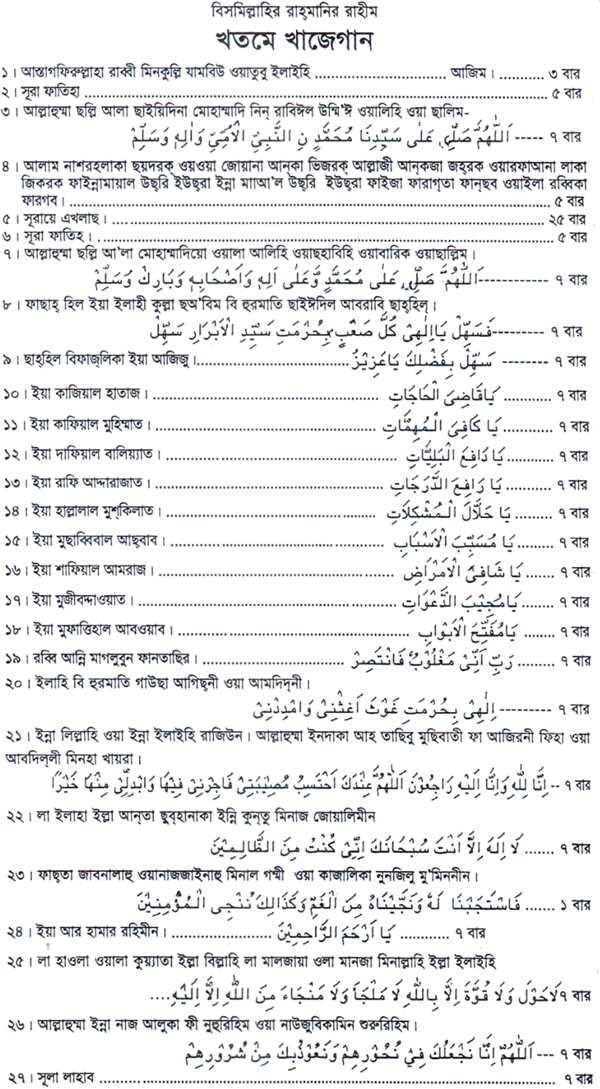 বিসমিল্লাহির রাহ্মানির রাহীম
খতমে খাজেগান
১। আস্তাগফিরুল্লাহা রাব্বী মিনকুল্লি যামবিউ ওয়াতুবু ইলাইহি ................................ আজিম। ........... ৩ বার
২। সূরা ফাতিহা ........................................................................................ ৫ বার
৩। আল্লাহুম্মা ছল্লি আলা ছাইয়িদিনা মোহাম্মাদি নিন্ রাবিঈল উম্মি'ঈ ওয়ালিহি ওয়া ছালিম-
اَللّٰهُمَّ صَلِّ عَلٰى سَيِّدِنَا مُحَمَّدٍ نِ النَّبِيِّ الْاُمِّيِّ وَاٰلِهٖ وَسَلِّمْ ----- ৭ বার
৪। আলাম নাশরহলাকা ছয়দরক ওয়ওয়া জোয়ানা আন্কা ভিজরক্ আল্লাজী আন্কজা জহ্রক ওয়ারফাআনা লাকা
জিকরক ফাইন্নামায়াল উছ্রি ইউছ্রা ইন্না মাাআ'ল উছ্রি ইউছ্রা ফাইজা ফারাগ্তা ফান্ছব ওয়াইলা রব্বিকা
ফারগব। .......................................................................................... ৫ বার
৫। সূরায়ে এখলাছ। ................................................................................ ২৫ বার
৬। সূরা ফাতিহ্। ..................................................................................... ৫ বার
৭। আল্লাহুম্মা ছল্লি আ'লা মোহাম্মাদিয়ো ওয়ালা আলিহি ওয়াছহাবিহি ওয়াবারিক ওয়াছাল্লিম।
اَللّٰهُمَّ صَلِّ عَلٰى مُحَمَّدٍ وَّعَلٰى اٰلِهٖ وَاَصْحَابِهٖ وَبَارِكْ وَسَلِّمْ ----------- ৭ বার
৮। ফাছাহ্ হিল ইয়া ইলাহী কুল্লা ছঅ'বিম বি হুরমাতি ছাইঈদিল আবরাবি ছাহ্হিল্।
فَسَهِّلْ يَااِلٰهِىْ كُلَّ صَعْبٍ بِحُرْمَتِ سَيِّدِ الْاَبْرَارِ سَهِّلْ ---------- ৭ বার
৯। ছাহ্হিল বিফাজ্লিকা ইয়া আজিজু। .............................. سَهِّلْ بِفَضْلِكَ يَاعَزِيْزُ -------- ৭ বার
১০। ইয়া কাজিয়াল হাতাজ। ........................................ يَاقَاضِىَ الْحَاجَاتِ ........... ৭ বার
১১। ইয়া কাফিয়াল মুহিম্মাত। ..................................... يَا كَافِىَ الْمُهِمَّاتِ ........... ৭ বার
১২। ইয়া দাফিয়াল বালিয়্যাত। ..................................... يَا دَافِعَ الْبَلِيَّاتِ ........... ৭ বার
১৩। ইয়া রাফি আদ্দারাজাত। ...................................... يَا رَافِعَ الدَّرَجَاتِ ........... ৭ বার
১৪। ইয়া হাল্লালাল মুশ্কিলাত। ..................................... يَا حَلَّالَ الْمُشْكِلَاتِ ........... ৭ বার
১৫। ইয়া মুছাব্বিবাল আছ্বাব। ................................... يَا مُسَبِّبَ الْاَسْبَابِ ........... ৭ বার
১৬। ইয়া শাফিয়াল আমরাজ। ..................................... يَا شَافِىَ الْاَمْرَاضِ ........... ৭ বার
১৭। ইয়া মুজীবদ্দাওয়াত। .......................................... يَامُجِيْبَ الدَّعْوَاتِ ........... ৭ বার
১৮। ইয়া মুফাত্তিহাল আবওয়াব। ................................ يَامُفَتِّحَ الْاَبْوَابِ ........... ৭ বার
১৯। রব্বি আন্নি মাগলুবুন ফানতাছির। .......................... رَبِّ اَنِّىْ مَغْلُوْبٌ فَانْتَصِرْ ........... ৭ বার
২০। ইলাহি বি হুরমাতি গাউছা আগিছ্নী ওয়া আমদিদ্নী।
اِلٰهِىْ بِحُرْمَتِ غَوْثَ اَغِثْنِىْ وَامْدِدْنِىْ --------- ৭ বার
২১। ইন্না লিল্লাহি ওয়া ইন্না ইলাইহি রাজিউন। আল্লাহুম্মা ইনদাকা আহ তাছিবু মুছিবাতী ফা আজিরনী ফিহা ওয়া
আবদিল্লী মিনহা খায়রা।
اِنَّا لِلّٰهِ وَاِنَّا اِلَيْهِ رَاجِعُوْنَ اَللّٰهُمَّ عِنْدَكَ اَحْتَسِبُ مُصِيْبَتِىْ فَاجِرْنِىْ فِيْهَا وَابْدِلْنِىْ مِنْهَا خَيْرًا -- ৭ বার
২২। লা ইলাহা ইল্লা আন্তা ছুব্হানাকা ইন্নি কুন্তু মিনাজ জোয়ালিমীন
لَا اِلٰهَ اِلَّا اَنْتَ سُبْحَانَكَ اِنِّىْ كُنْتُ مِنَ الظَّالِمِيْنَ ....... ৭ বার
২৩। ফাছ্তা জাবনালাহু ওয়ানাজজাইনাহু মিনাল গম্মী ওয়া কাজালিকা নুনজিলু মু'মিননীন।
فَاسْتَجَبْنَا لَهٗ وَنَجَّيْنَاهُ مِنَ الْغَمِّ وَكَذَالِكَ نُنْجِى الْمُؤْمِنِيْنَ ....... ১ বার
২৪। ইয়া আর হামার রহিমীন। ...................... يَا اَرْحَمَ الرَّاحِمِيْنَ ............ ৭ বার
২৫। লা হাওলা ওয়ালা কুয়্যাতা ইল্লা বিল্লাহি লা মালজায়া ওলা মানজা মিনাল্লাহি ইল্লা ইলাইহি
لَاحَوْلَ وَلَا قُوَّةَ اِلَّا بِاللّٰهِ لَا مَلْجَأَ وَلَا مَنْجَاءَ مِنَ اللّٰهِ اِلَّا اِلَيْهِ.... ৭ বার
২৬। আল্লাহুম্মা ইন্না নাজ আলুকা ফী নুহুরিহিম ওয়া নাউজুবিকামিন শুরুরিহিম।
اَللّٰهُمَّ اِنَّا نَجْعَلُكَ فِىْ نُحُوْرِهِمْ وَنَعُوْذُبِكَ مِنْ شُرُوْرِهِمْ --- ৭ বার
২৭। সূলা লাহাব .................................................................................. ৭ বার